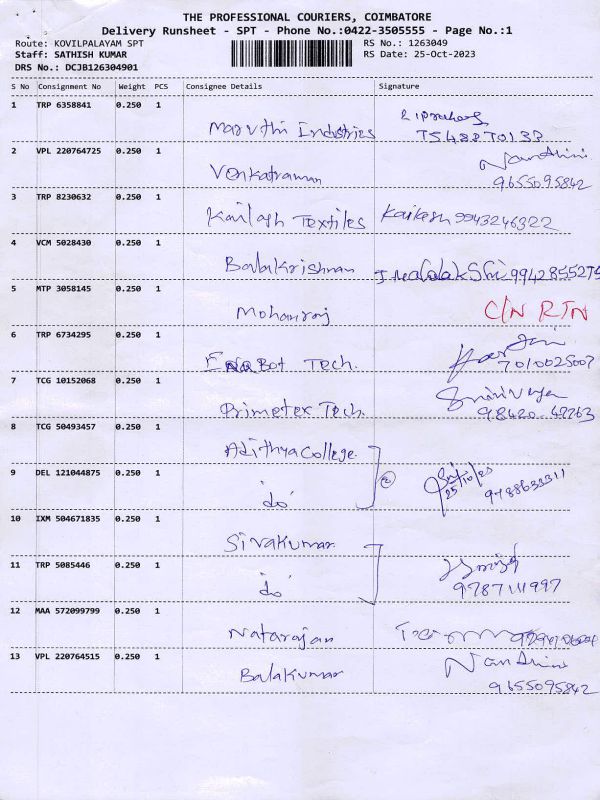 THE PROFESSIONAL COURIERS, COIMBATORE
Delivery Runsheet - SPT - Phone No.:0422-3505555 - Page No.:1
Route: KOVILPALAYAM SPT RS No.: 1263049
Staff: SATHISH KUMAR RS Date: 25-Oct-2023
DRS No.: DCJB126304901
S No Consignment No Weight PCS Consignee Details Signature
1 TRP 6358841 0.250 1
Maruthi Industries
2 VPL 220764725 0.250 1 Nandhini
Venkatraman 9655095842
3 TRP 8230632 0.250 1
Kailash Textiles Kailash 9943246322
4 VCM 5028430 0.250 1
Balakrishnan
5 MTP 3058145 0.250 1
Mohanraj C/N RTN
6 TRP 6734295 0.250 1
Bot Tech. 7010025007
7 TCG 10152068 0.250 1
Primetex Tech.
8 TCG 50493457 0.250 1
Adithya College
9 DEL 121044875 0.250 1 ②
do
10 IXM 504671835 0.250 1
Sivakumar
11 TRP 5085446 0.250 1
do 9787111997
12 MAA 572099799 0.250 1
Natarajan
13 VPL 220764515 0.250 1 Nandhini
Balakumar 9655095842